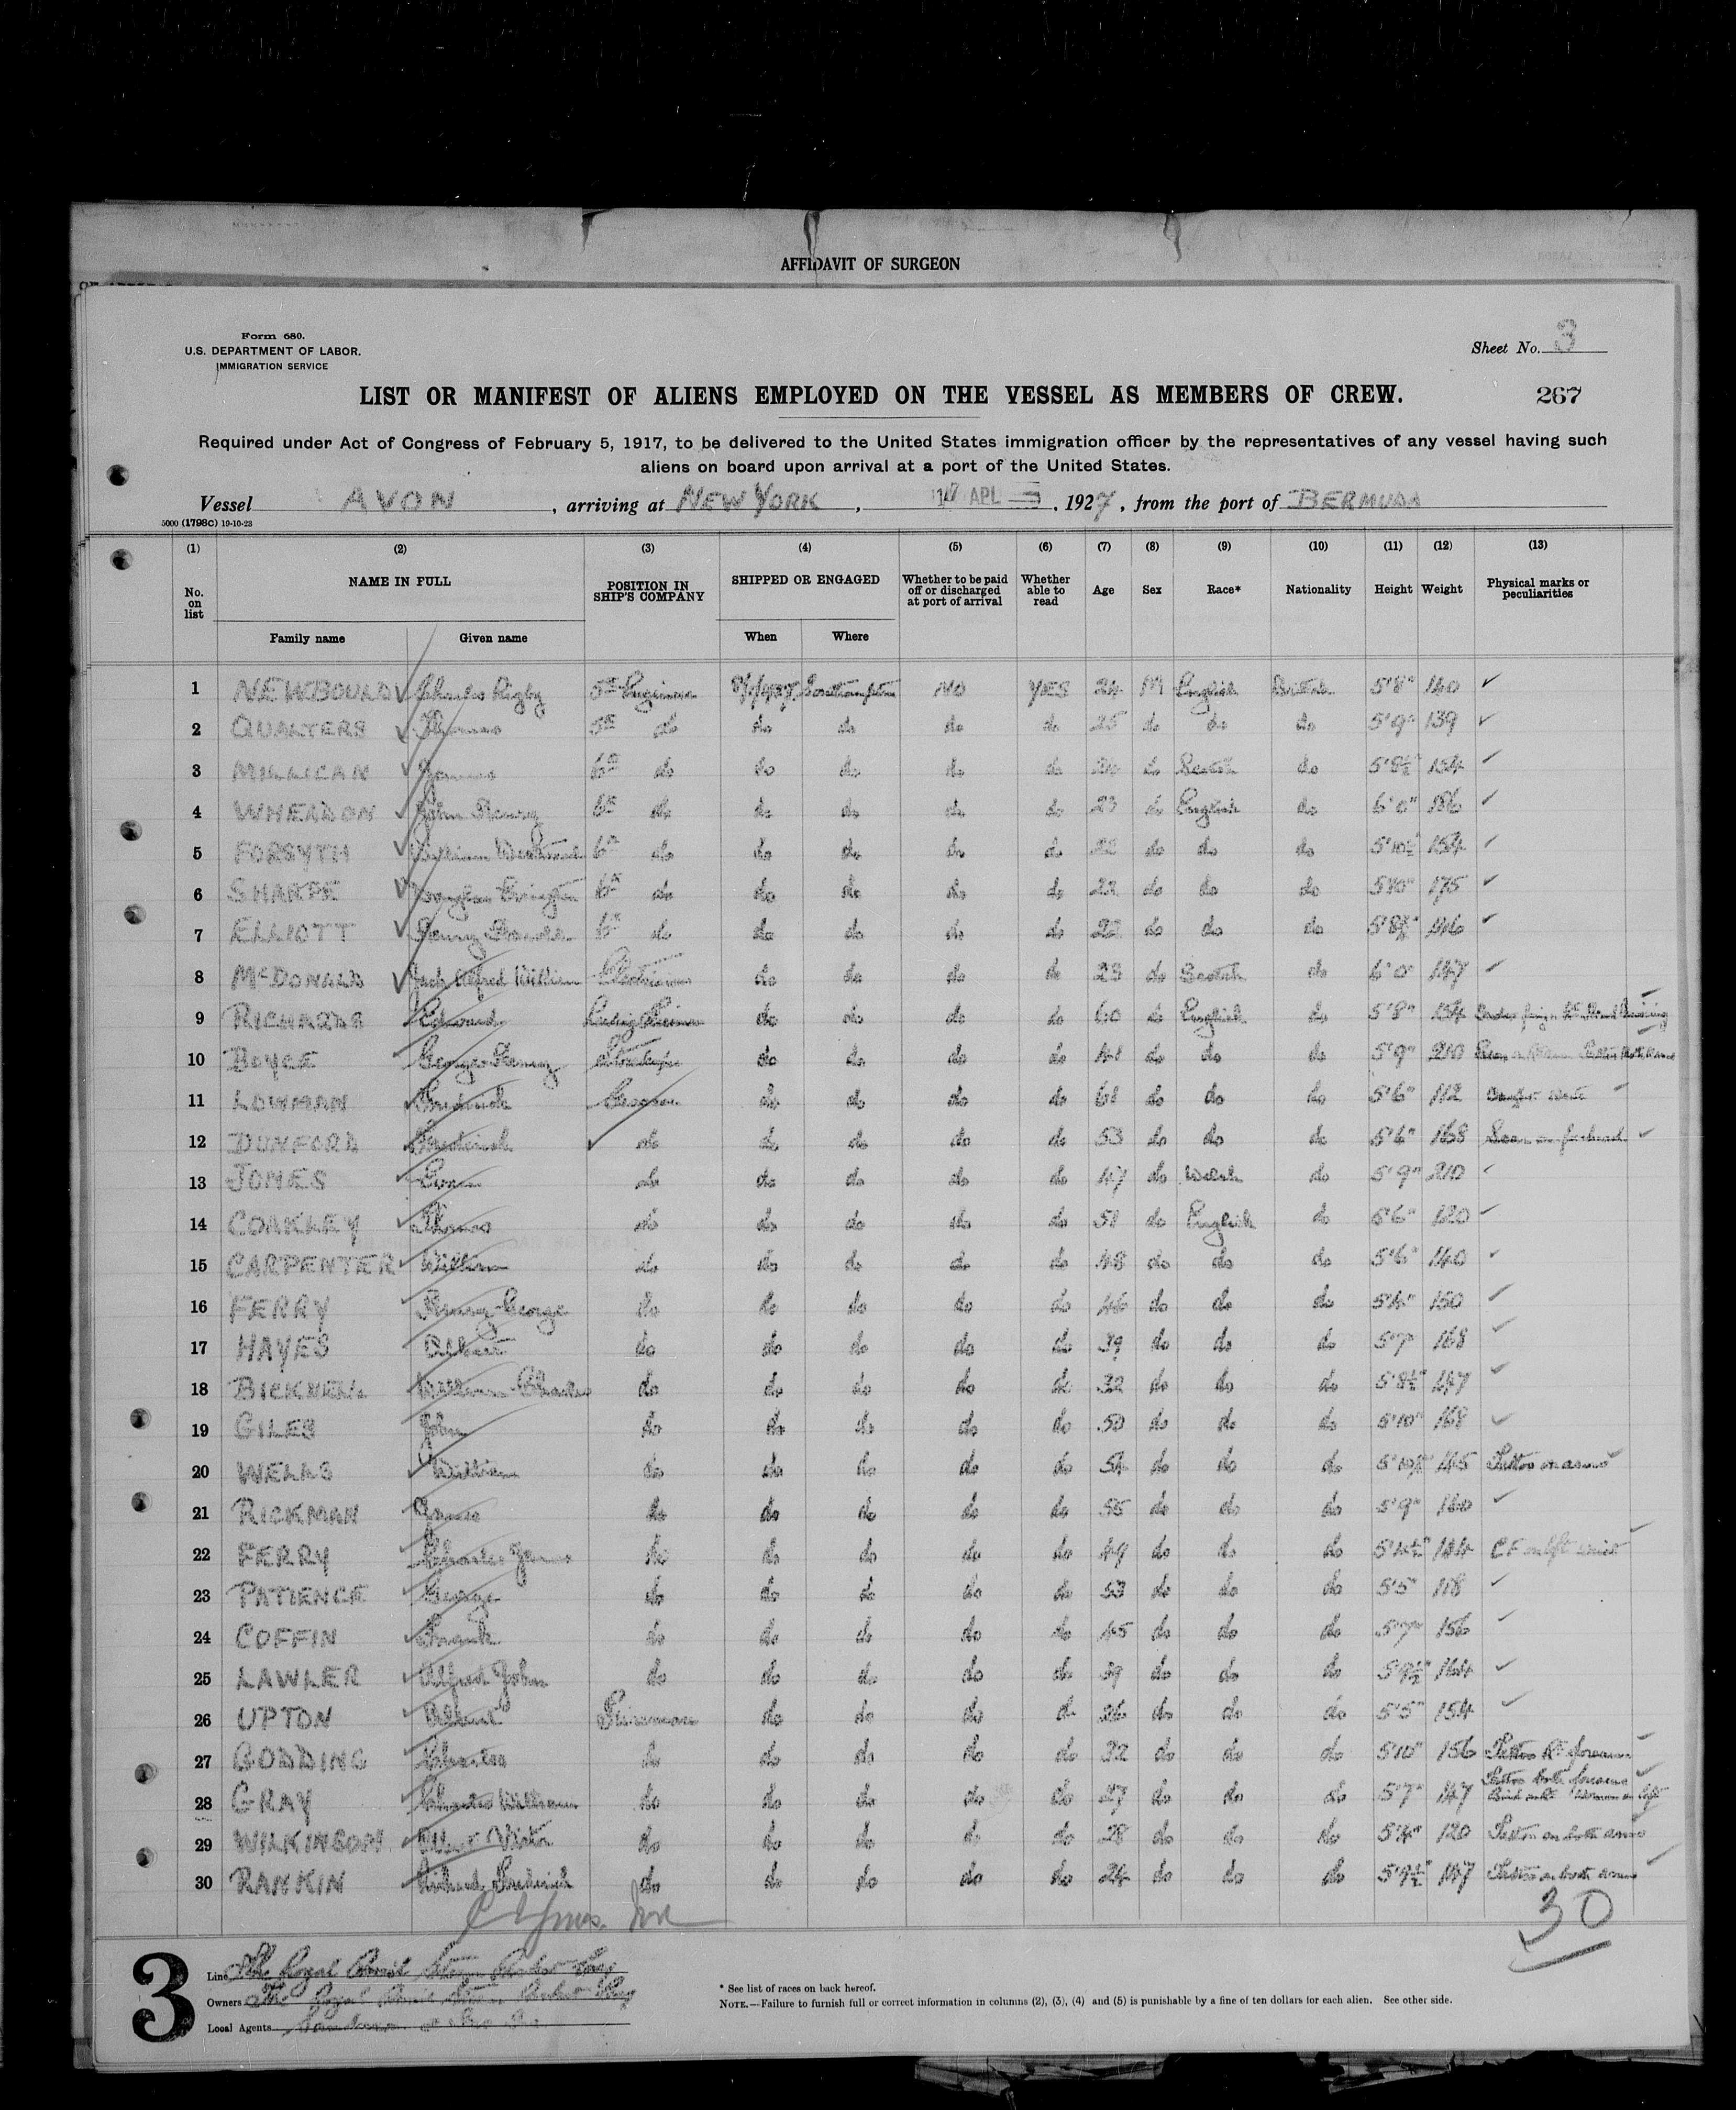 AFFIDAVIT OF SURGEON
Form 680.
U.S. DEPARTMENT OF LABOR.
IMMIGRATION SERVICE
Sheet No. 3
LIST OR MANIFEST OF ALIENS EMPLOYED ON THE VESSEL AS MEMBERS OF CREW. 267
Required under Act of Congress of February 5, 1917, to be delivered to the United States immigration officer by the representatives of any vessel having such
aliens on board upon arrival at a port of the United States.
Vessel AVON, arriving at NEW YORK, APL, 1927, from the port of BERMUDA
5000 (1798C) 19-10-23
(1) (2) (3) (4) (5) (6) (7) (8) (9) (10) (11) (12) (13)
No. on list NAME IN FULL POSITION IN SHIP'S COMPANY SHIPPED OR ENGAGED Whether to be paid off or discharged at port of arrival Whether able to read Age Sex Race* Nationality Height Weight Physical marks or peculiarities
Family name Given name When Where
1 NEWBOULD ✓ Charles Rigby 5th Engineer Southampton NO YES 24 M English British 5'8" 140 ✓
2 QUALTERS ✓ Thomas 5th do do do do do 25 do do do 5'9" 139 ✓
3 MILLICAN ✓ James 6th do do do do do do Scotch do 5'8½" 154 ✓
4 WHEADON ✓ John Henry 6th do do do do do 23 do English do 6'0" 186 ✓
5 FORSYTH ✓ William 6th do do do do do 22 do do do 5'10½" 154 ✓
6 SHARPE ✓ Douglas 6th do do do do do 22 do do do 5'10" 175 ✓
7 ELLIOTT ✓ Henry 6th do do do do do 22 do do do 146 ✓
8 McDONALD ✓ Jack Alfred William Electrician do do do do 23 do Scotch do 6'0" 147 ✓
9 RICHARDS Edward Leading Fireman do do do do 60 do English do 5'8" 154
10 BOYCE George Henry Storekeeper do do do do 48 do do do 5'9" 210
11 LOWMAN Frederick Greaser do do do do 61 do do do 5'6" 112
12 DUNFORD Frederick do do do do do 53 do do do 5'6" 168 Scar on forehead ✓
13 JONES Evan do do do do do 47 do Welsh do 5'9" 210 ✓
14 COAKLEY Thomas do do do do do 51 do English do 5'6" 120 ✓
15 CARPENTER William do do do do do 48 do do do 5'6" 140 ✓
16 FERRY Henry George do do do do do 46 do do do 5'4" 150 ✓
17 HAYES Albert do do do do do 39 do do do 5'7" 168 ✓
18 BICKNELL William Charles do do do do do 32 do do do 5'8½" 147 ✓
19 GILES John do do do do do 50 do do do 5'10" 168 ✓
20 WELLS William do do do do do 54 do do do 145 Tattoo on arms ✓
21 RICKMAN James do do do do do 55 do do do 5'9" 160 ✓
22 FERRY Charles James do do do do do 49 do do do 5'4½" 144 CF on left wrist
23 PATIENCE George do do do do do 53 do do do 5'5" 118 ✓
24 COFFIN Frank do do do do do 45 do do do 5'7" 156 ✓
25 LAWLER Alfred John do do do do do 39 do do do 5'9½" 164 ✓
26 UPTON Albert Fireman do do do do 26 do do do 5'5" 154 ✓
27 GODDING Charles do do do do do 32 do do do 5'10" 156 Tattoo Rt forearm
28 GRAY Charles William do do do do do 27 do do do 5'7" 147 Tattoo both forearms
29 WILKINSON Albert Victor do do do do do 28 do do do 5'4" 120 Tattoo on both arms
30 RANKIN Richard Frederick do do do do do 24 do do do 5'9½" 147 Tattoo on both arms
30
3
Line The Royal Mail Steam Packet Coy
Owners The Royal Mail Steam Packet Coy
Local Agents Sanderson
* See list of races on back hereof.
NOTE.—Failure to furnish full or correct information in columns (2), (3), (4) and (5) is punishable by a fine of ten dollars for each alien. See other side.